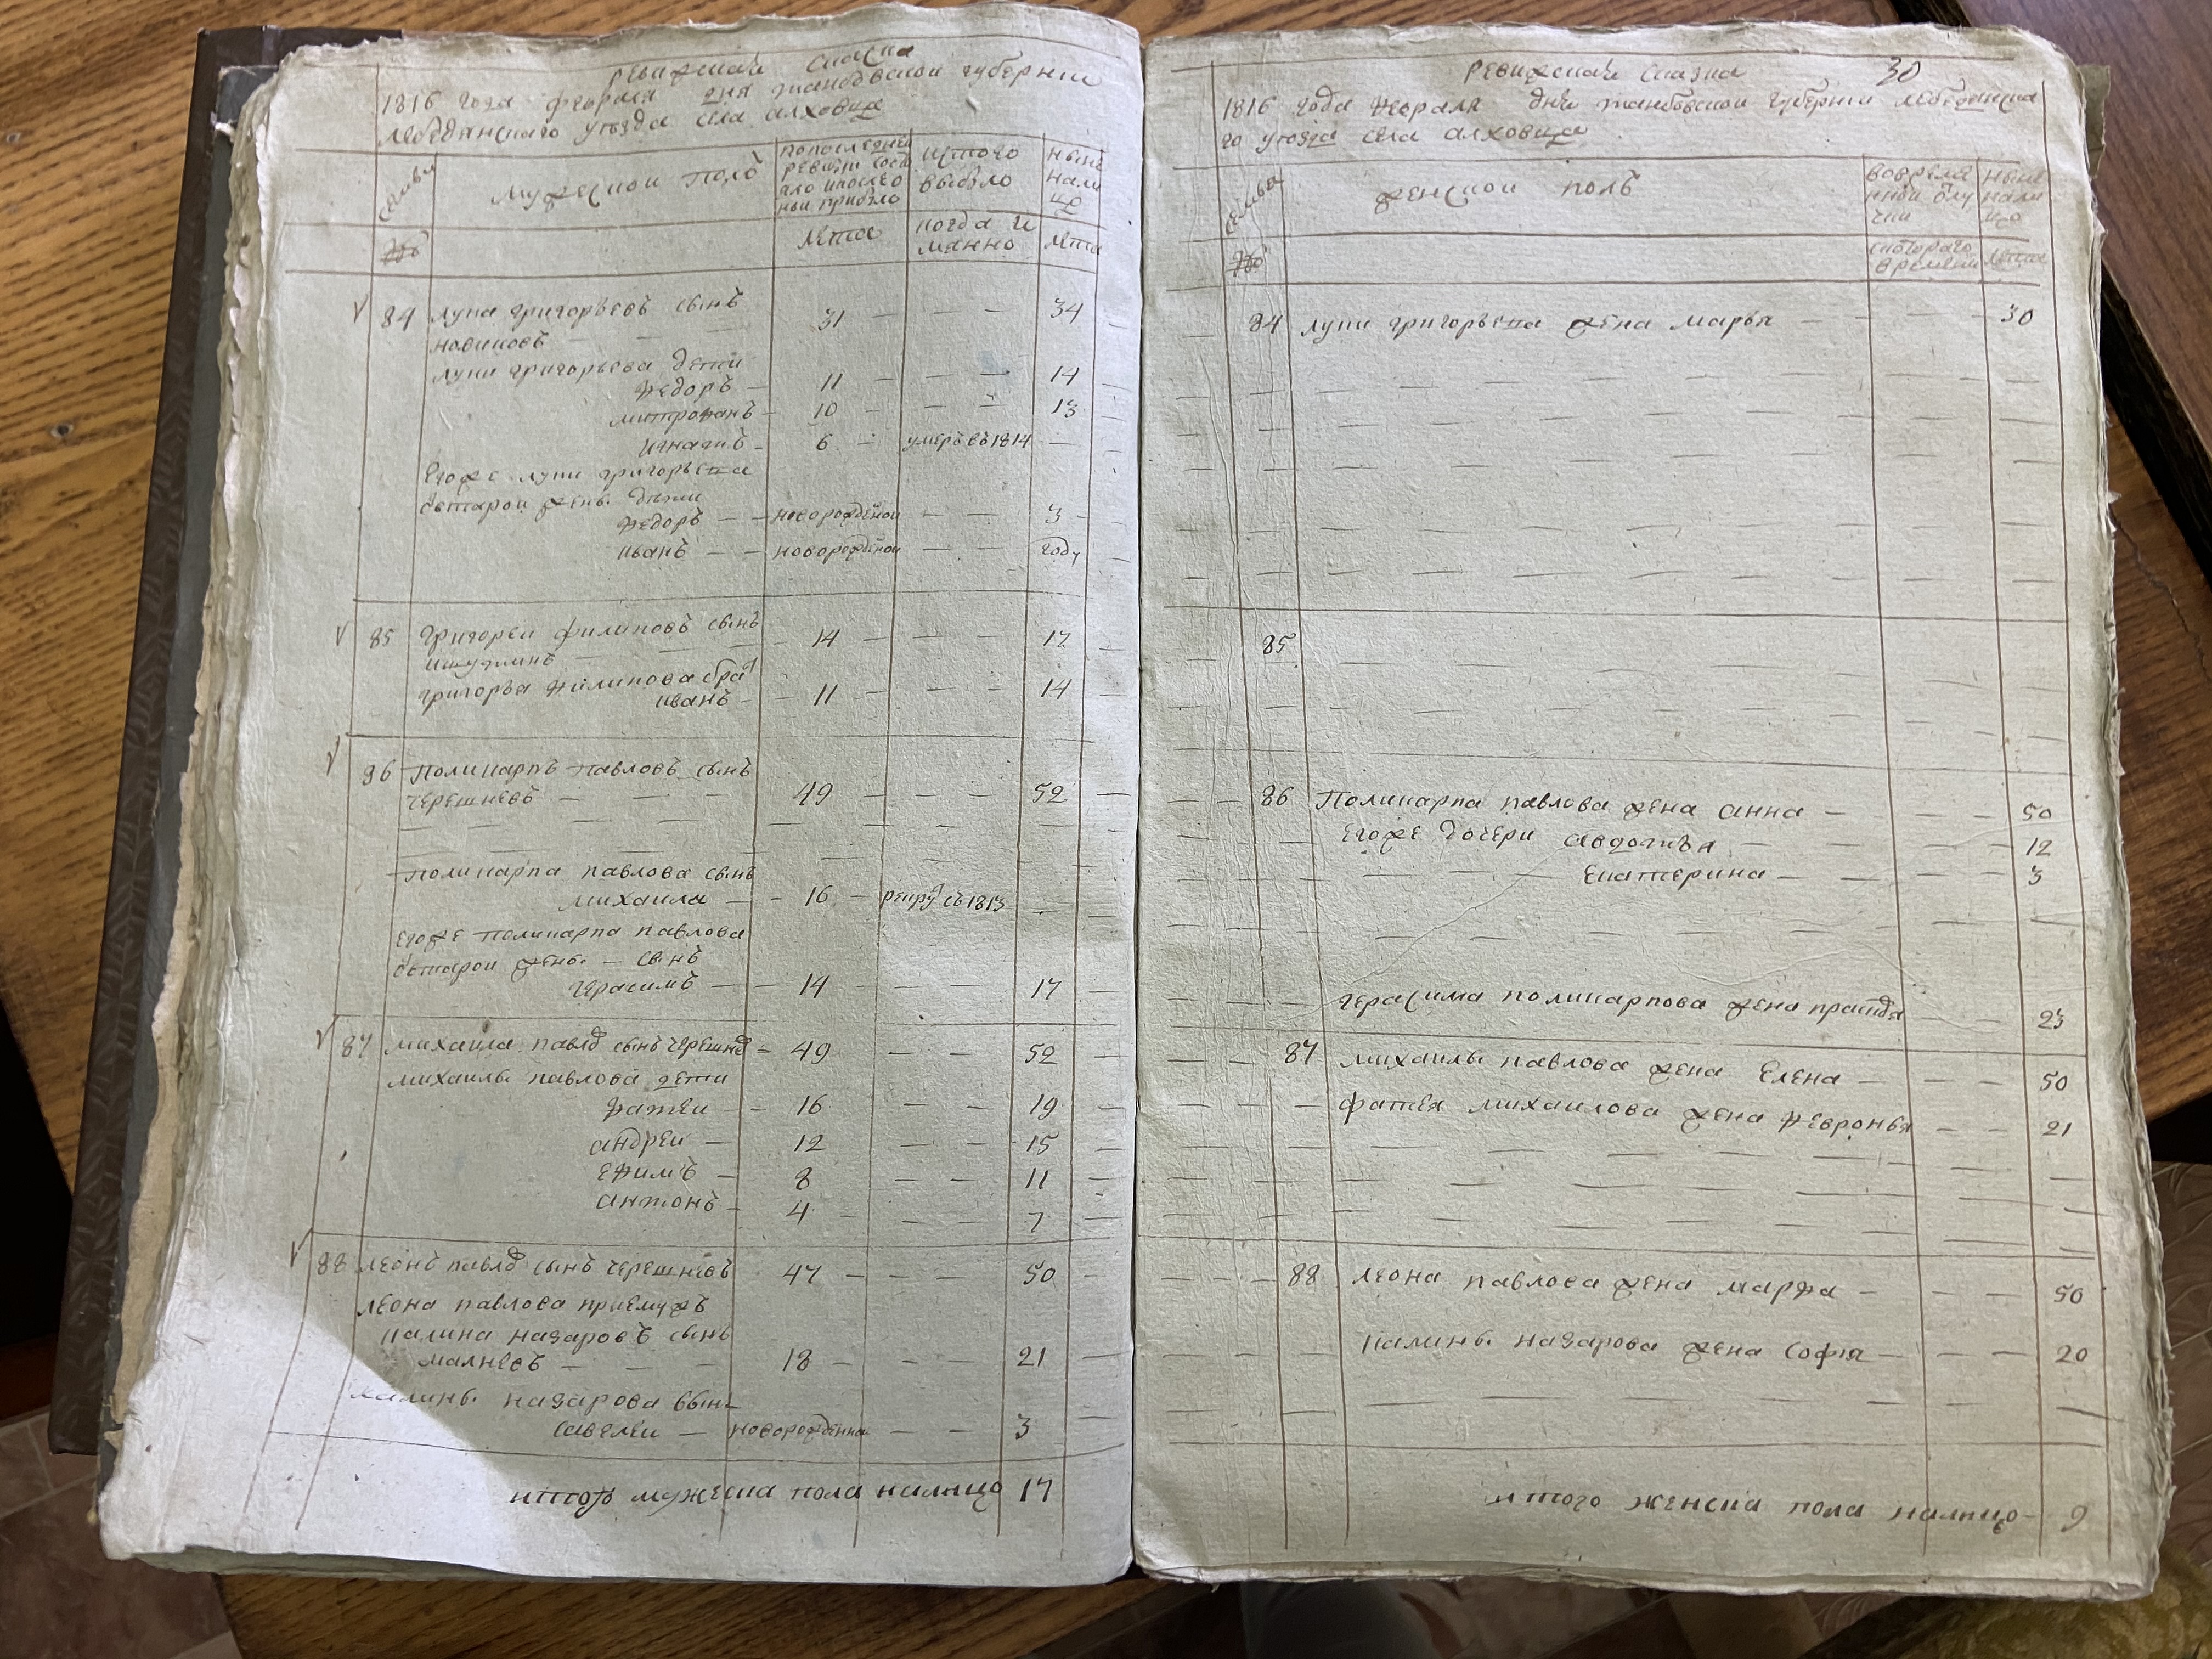 ревижская сказка
1816 года февраля дня танбовской губернии
лебедянского уезда села алховца
семьи
мужеской полъ
попоследней
ревизи сост
яло ипослео
ныи прибыло
истого
выбыло
ныне
нали
цо
№
лета
когда и
манно
лета
84 лупа григорьевъ сынъ 31 — — — 34
новиковъ — —
лупи григорьева дети
федоръ — 11 — — — 14
митрофанъ — 10 — — — 13
игнатъ — 6 — умеръ въ 1814 —
егоже лупи григорьева
оетарои жены дети
федоръ — — новорожденои — — 3
иванъ — — новорожденои — — году
85 григореи филиповъ сынъ 14 — — — 17
ишутинъ —
григорья филипова бра
иванъ — 11 — — — 14
86 поликарпъ павловъ сынъ
черешневъ — — — 49 — — — 52
поликарпа павлова сынъ
михаила — — 16 — рекру въ 1813
егоже поликарпа павлова
оетарои жены — сынъ
герасимъ — — 14 — — — 17
87 михаила павло сынъ черешне — 49 — — 52
михаилы павлова дети
фатеи — — 16 — — 19
андреи — 12 — — 15
ефимъ — 8 — — 11
антонъ — 4 — — — 7
88 леонъ павло сынъ черешневъ 47 — — — 50
леона павлова приемужъ
калина назаровъ сынъ
малневъ — — — 18 — — — 21
калины назарова сынъ
савелеи — новорожденна — — 3
итого мужеска пола налицо 17
ревижская сказка 30
1816 года февраля дня танбовской губернии лебедянска
го уезда села алховца
семьи
женской полъ
вовреме
нной отлу
чки
ныне
нали
цо
№
скоторого
времени
лета
84 лупи григорьева жена марья — — — — 30
85
86 Поликарпа павлова жена анна — — — 50
егоже дочери авдотья — — — 12
екатерина — — — — 3
герасима поликарпова жена — — 23
87 михаилы павлова жена елена — — — 50
фатея михаилова жена февронья — — 21
88 леона павлова жена марфа — — — 50
калины назарова жена софья — — — 20
итого женска пола налицо — 9